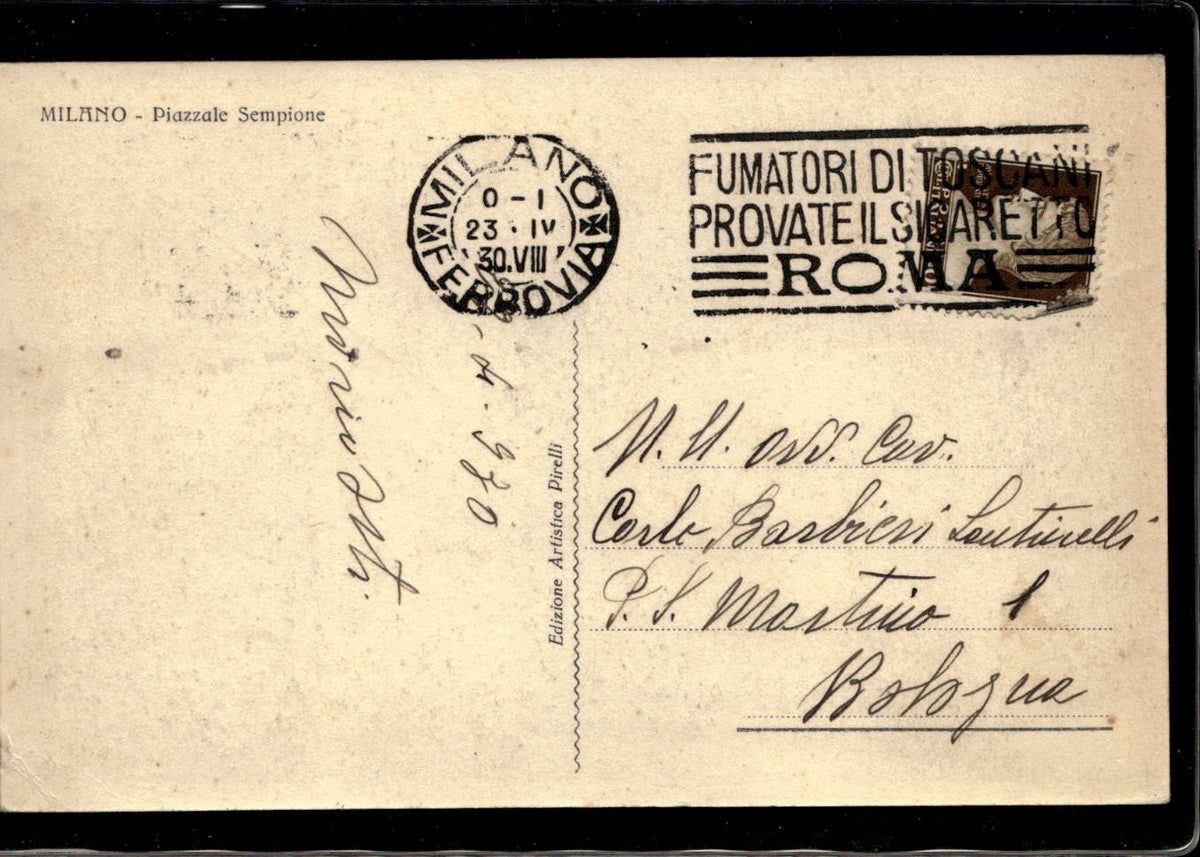 MILANO - Piazzale Sempione
MILANO
0 - 1
23 · IV
30.VIII
FERROVIA
FUMATORI DI TOSCANI
PROVATE IL SIGARETTO
ROMA
- 4 - 930
Edizione Artistica Pirelli
N. H. Avv. Cav.
Carlo Barbieri Sentinelli
P. S. Martino 1
Bologna